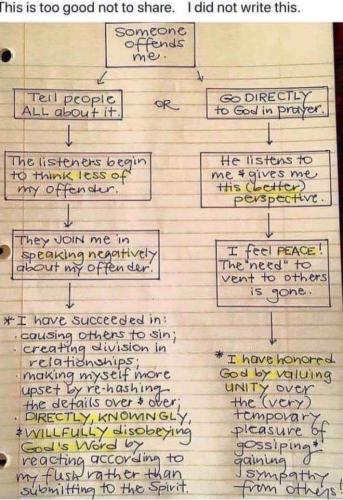 This is too good not to share. I did not write this.
Someone
offends
me.
Tell people
ALL about it.
OR
Go DIRECTLY
to God in prayer.
The listeners begin
to think less of
my offender.
He listens to
me & gives me
His (better)
perspective.
They JOIN me in
speaking negatively
about my offender.
I feel PEACE!
The "need" to
vent to others
is gone.
* I have succeeded in:
· causing others to sin;
· creating division in
relationships;
· making myself more
upset by re-hashing
the details over & over;
· DIRECTLY, KNOWINGLY,
& WILLFULLY disobeying
God's Word by
reacting according to
my flesh rather than
submitting to the Spirit.
* I have honored
God by valuing
UNITY over
the (very)
temporary
pleasure of
gossiping &
gaining
sympathy
from others!